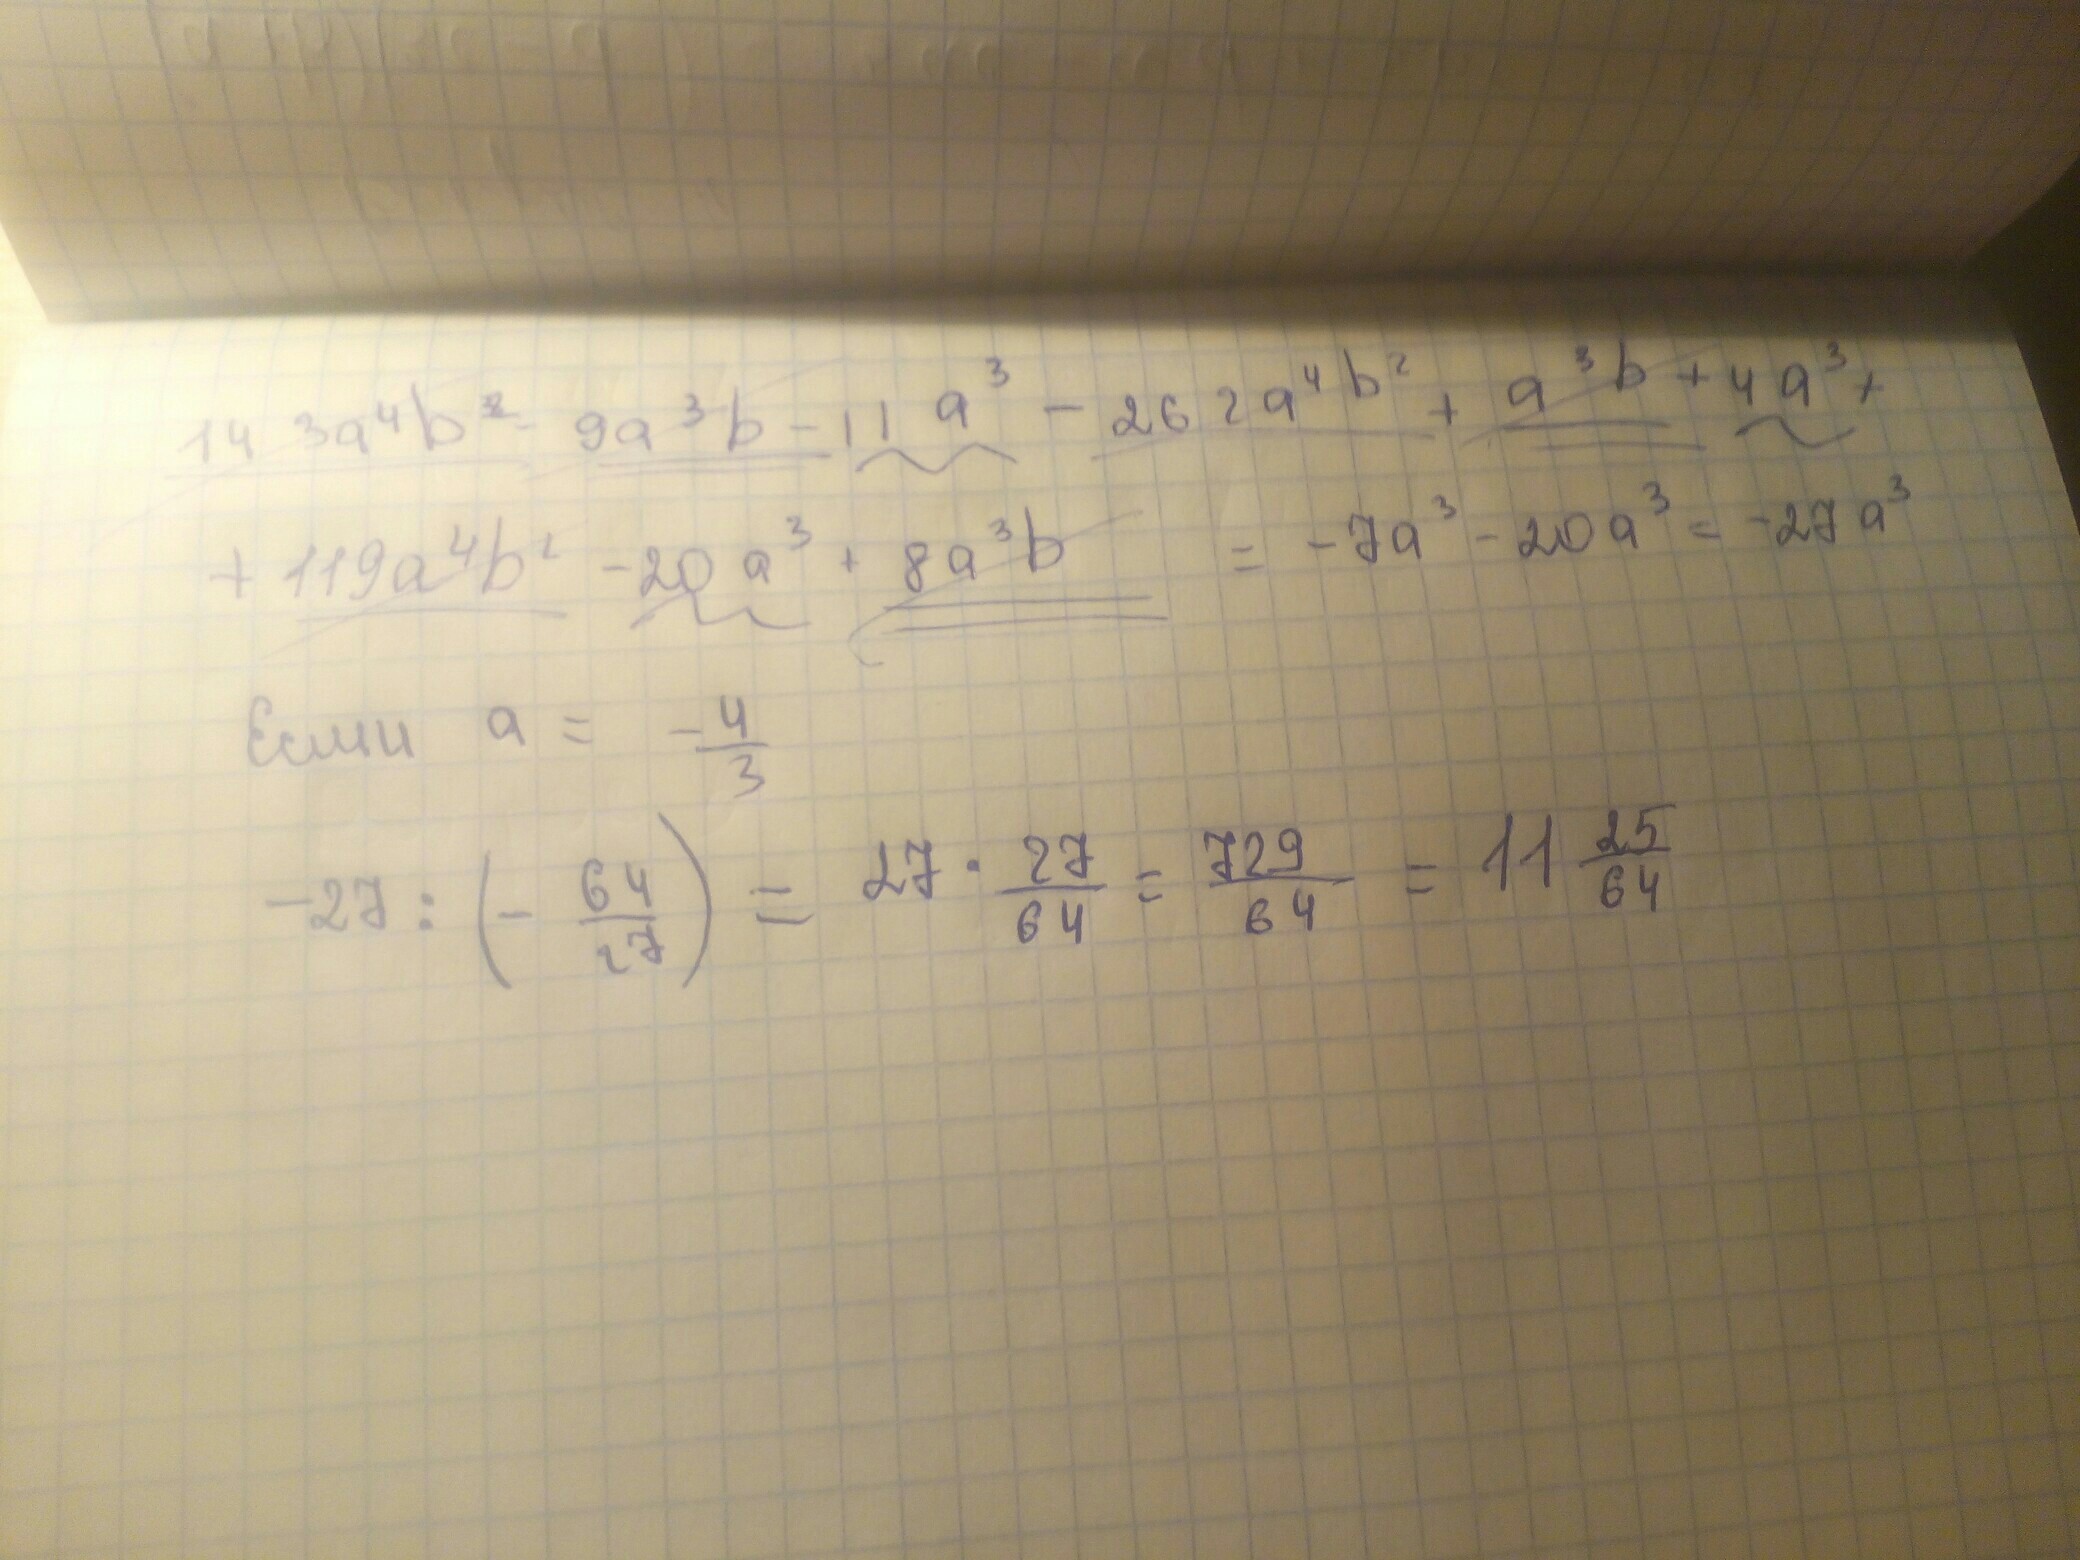 143a⁴b² - 9a³b - 11a³ - 262a⁴b² + a³b + 4a³ +
+ 119a⁴b² - 20a³ + 8a³b = -7a³ - 20a³ = -27a³
Если a = -4/3
-27 : (- 64/27) = 27 · 27/64 = 729/64 = 11 25/64